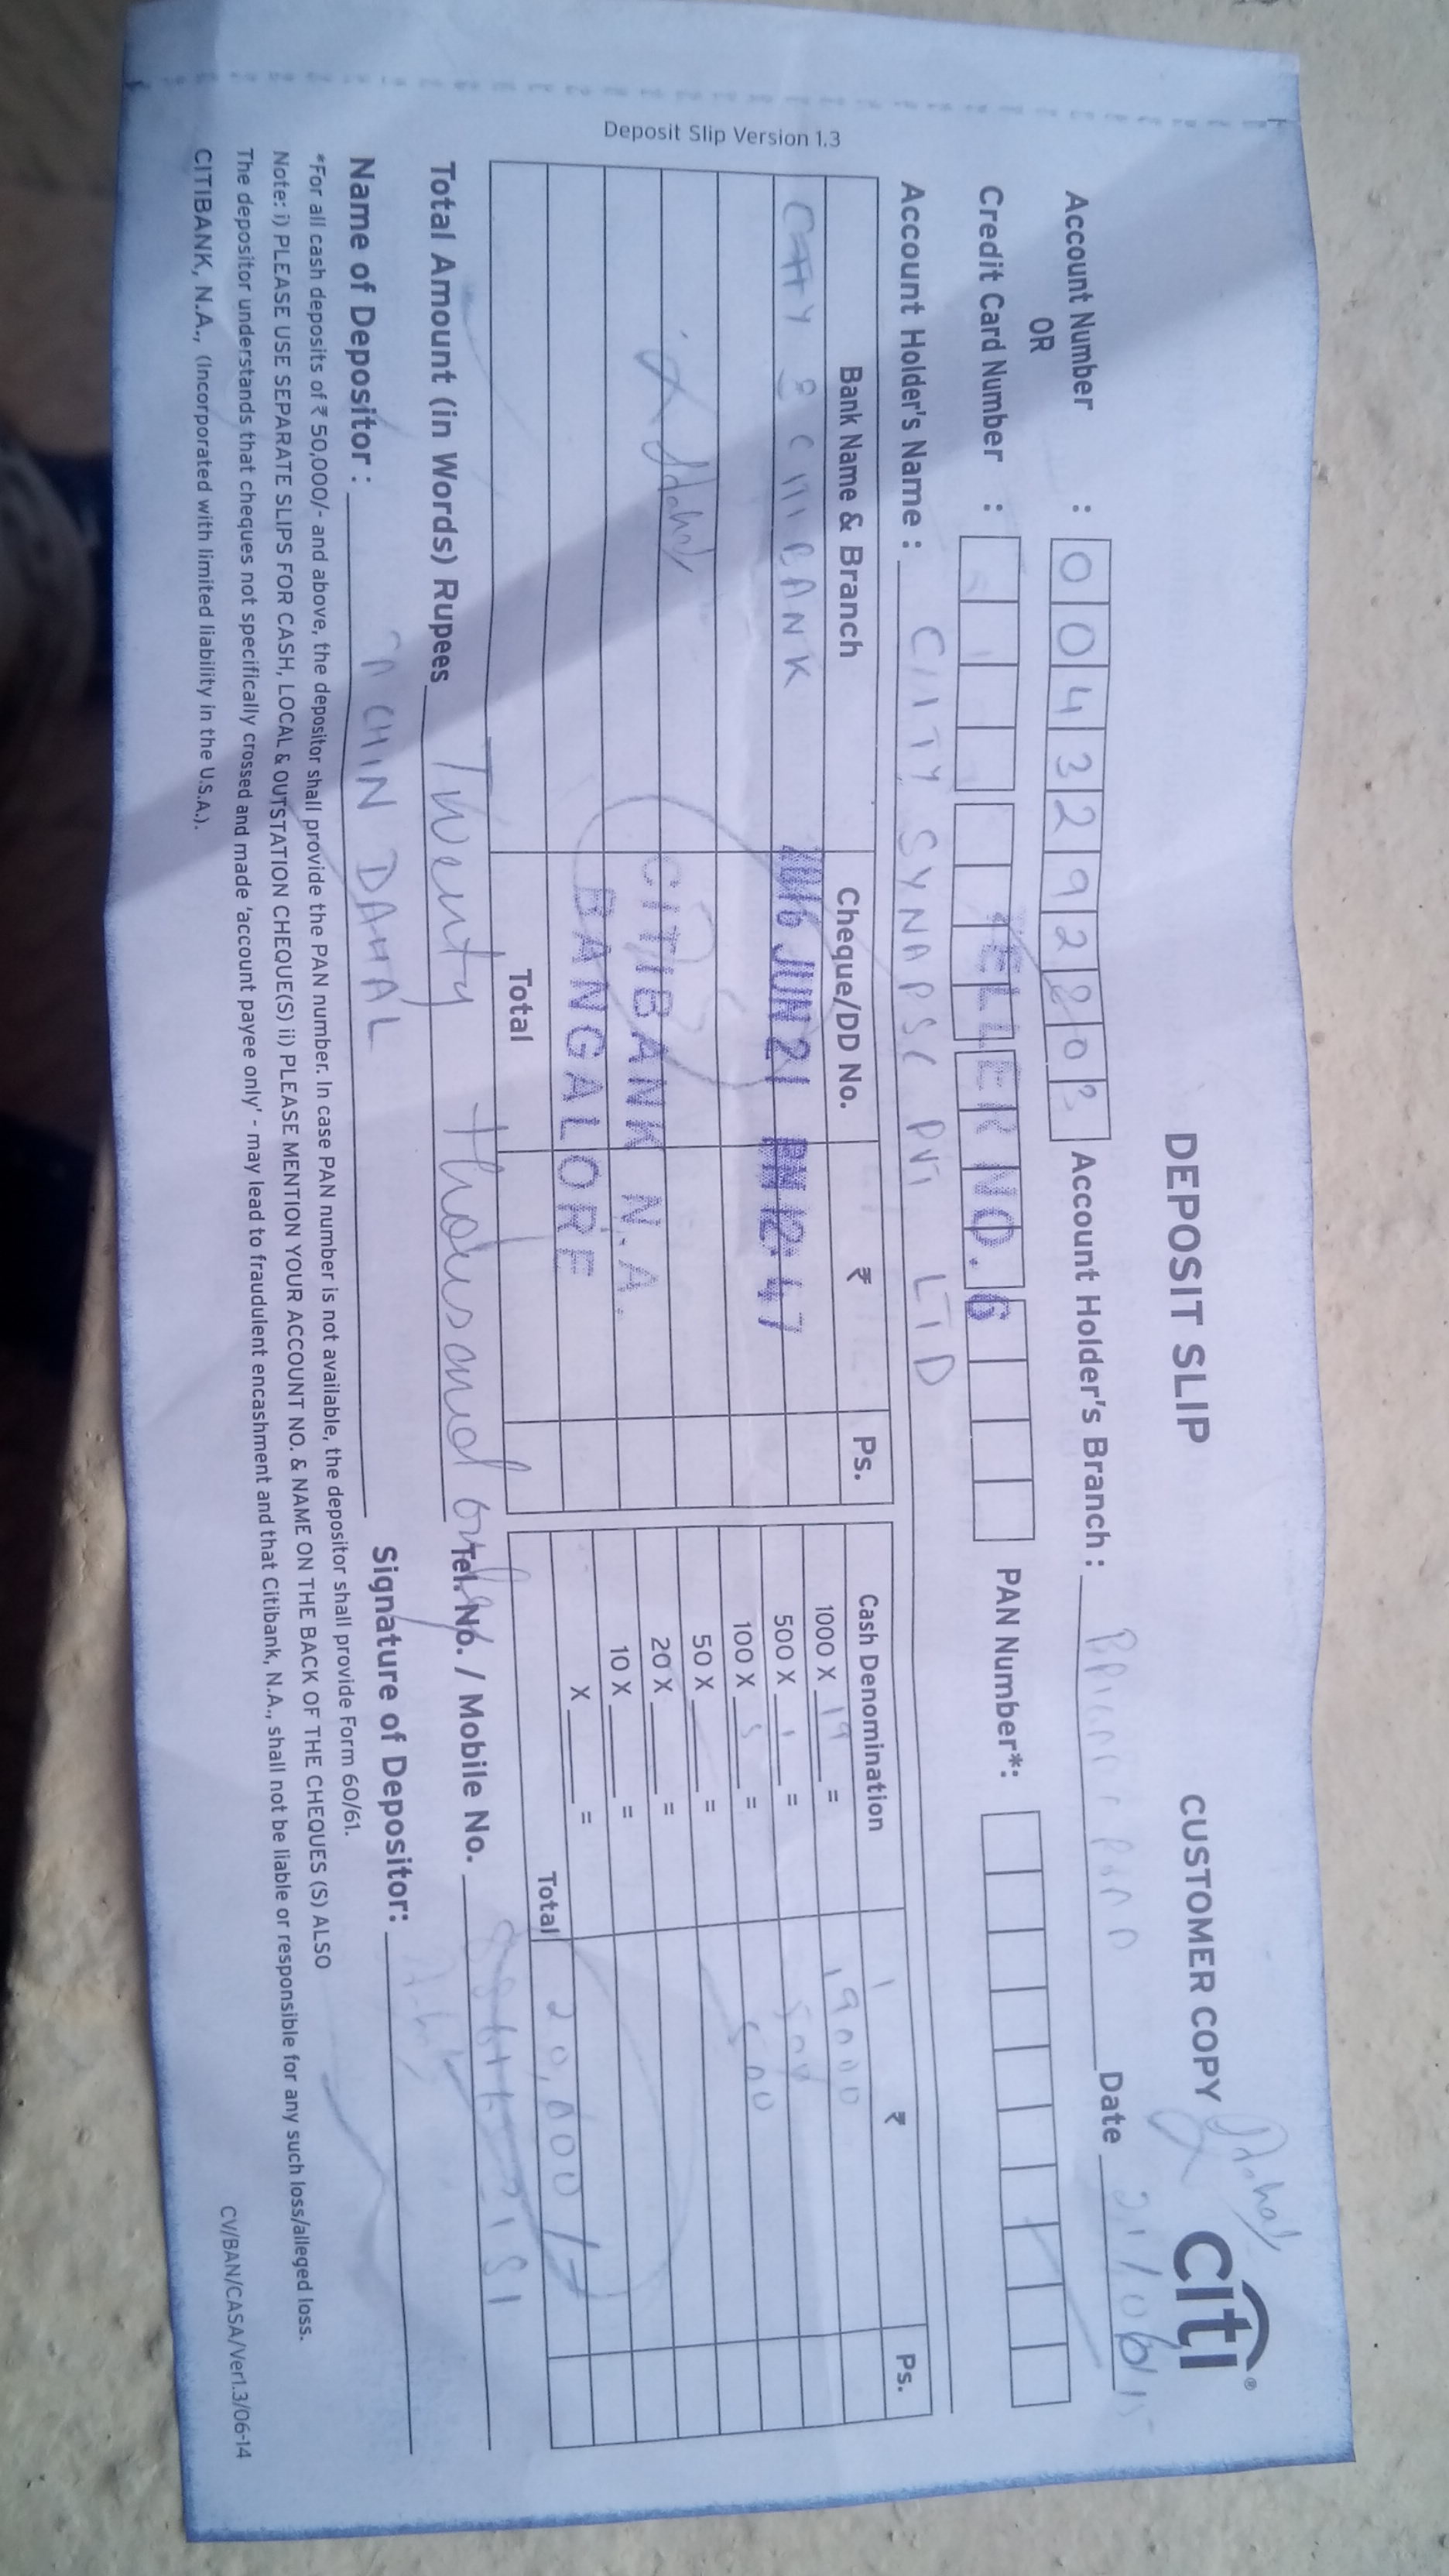 Deposit Slip Version 1.3
DEPOSIT SLIP
CUSTOMER COPY
citi®
Account Number : 0 0 4 3 2 9 2 2 0
Account Holder's Branch :
Date 21/06/15
OR
Credit Card Number :
TELLER NO. 6
PAN Number*:
Account Holder's Name : CIITY SYNAPSC PVT LTD
Bank Name & Branch Cheque/DD No. ₹ Ps.
BANK
JUN 21 PM 12:47
CITIBANK N.A.
BANGALORE
Total
Cash Denomination ₹ Ps.
1000 X 19 = 19000
500 X 1 = 500
100 X 5 = 500
50 X =
20 X =
10 X =
X =
Total 20,000/-
Total Amount (in Words) Rupees Twenty thousand only
Tel. No. / Mobile No.
Name of Depositor : DAHAL
Signature of Depositor:
*For all cash deposits of ₹ 50,000/- and above, the depositor shall provide the PAN number. In case PAN number is not available, the depositor shall provide Form 60/61.
Note: i) PLEASE USE SEPARATE SLIPS FOR CASH, LOCAL & OUTSTATION CHEQUE(S) ii) PLEASE MENTION YOUR ACCOUNT NO. & NAME ON THE BACK OF THE CHEQUES (S) ALSO
The depositor understands that cheques not specifically crossed and made 'account payee only' - may lead to fraudulent encashment and that Citibank, N.A., shall not be liable or responsible for any such loss/alleged loss.
CITIBANK, N.A., (Incorporated with limited liability in the U.S.A.).
CV/BAN/CASA/Ver1.3/06-14